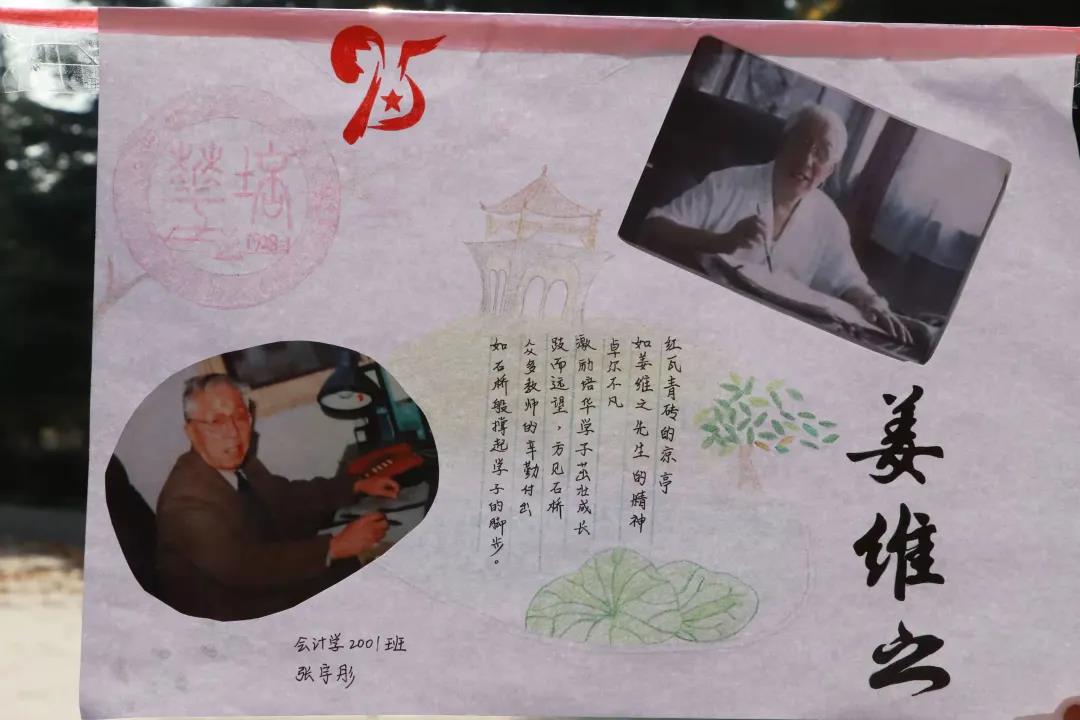 95
培華
1928
红瓦青砖的凉亭
如姜维之先生的精神
卓尔不凡
激励培华学子茁壮成长
跂而远望,方见石桥
众多教师的辛勤付出
如石桥般撑起学子的脚步。
姜维之
会计学2001班
张宇彤